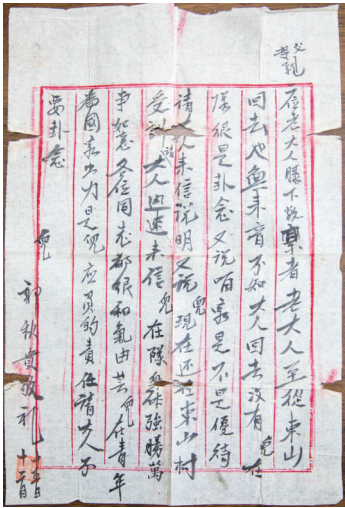 父亲
母亲
二居老大人膝下敬禀者老大人至從東山
回去也無来音不知大人回去没有兒在
隊很是卦念又説咱家是不是優待
請大人来信説明又説兒現在还在東山村
受訓 大人迅速来信兒在隊身体強勝萬
事如意各位同志都很和氣由其兒在青年
為國家出力是兒应負的責任請大人不
要卦念
兒
郭秋貴敬礼
十一月十二日